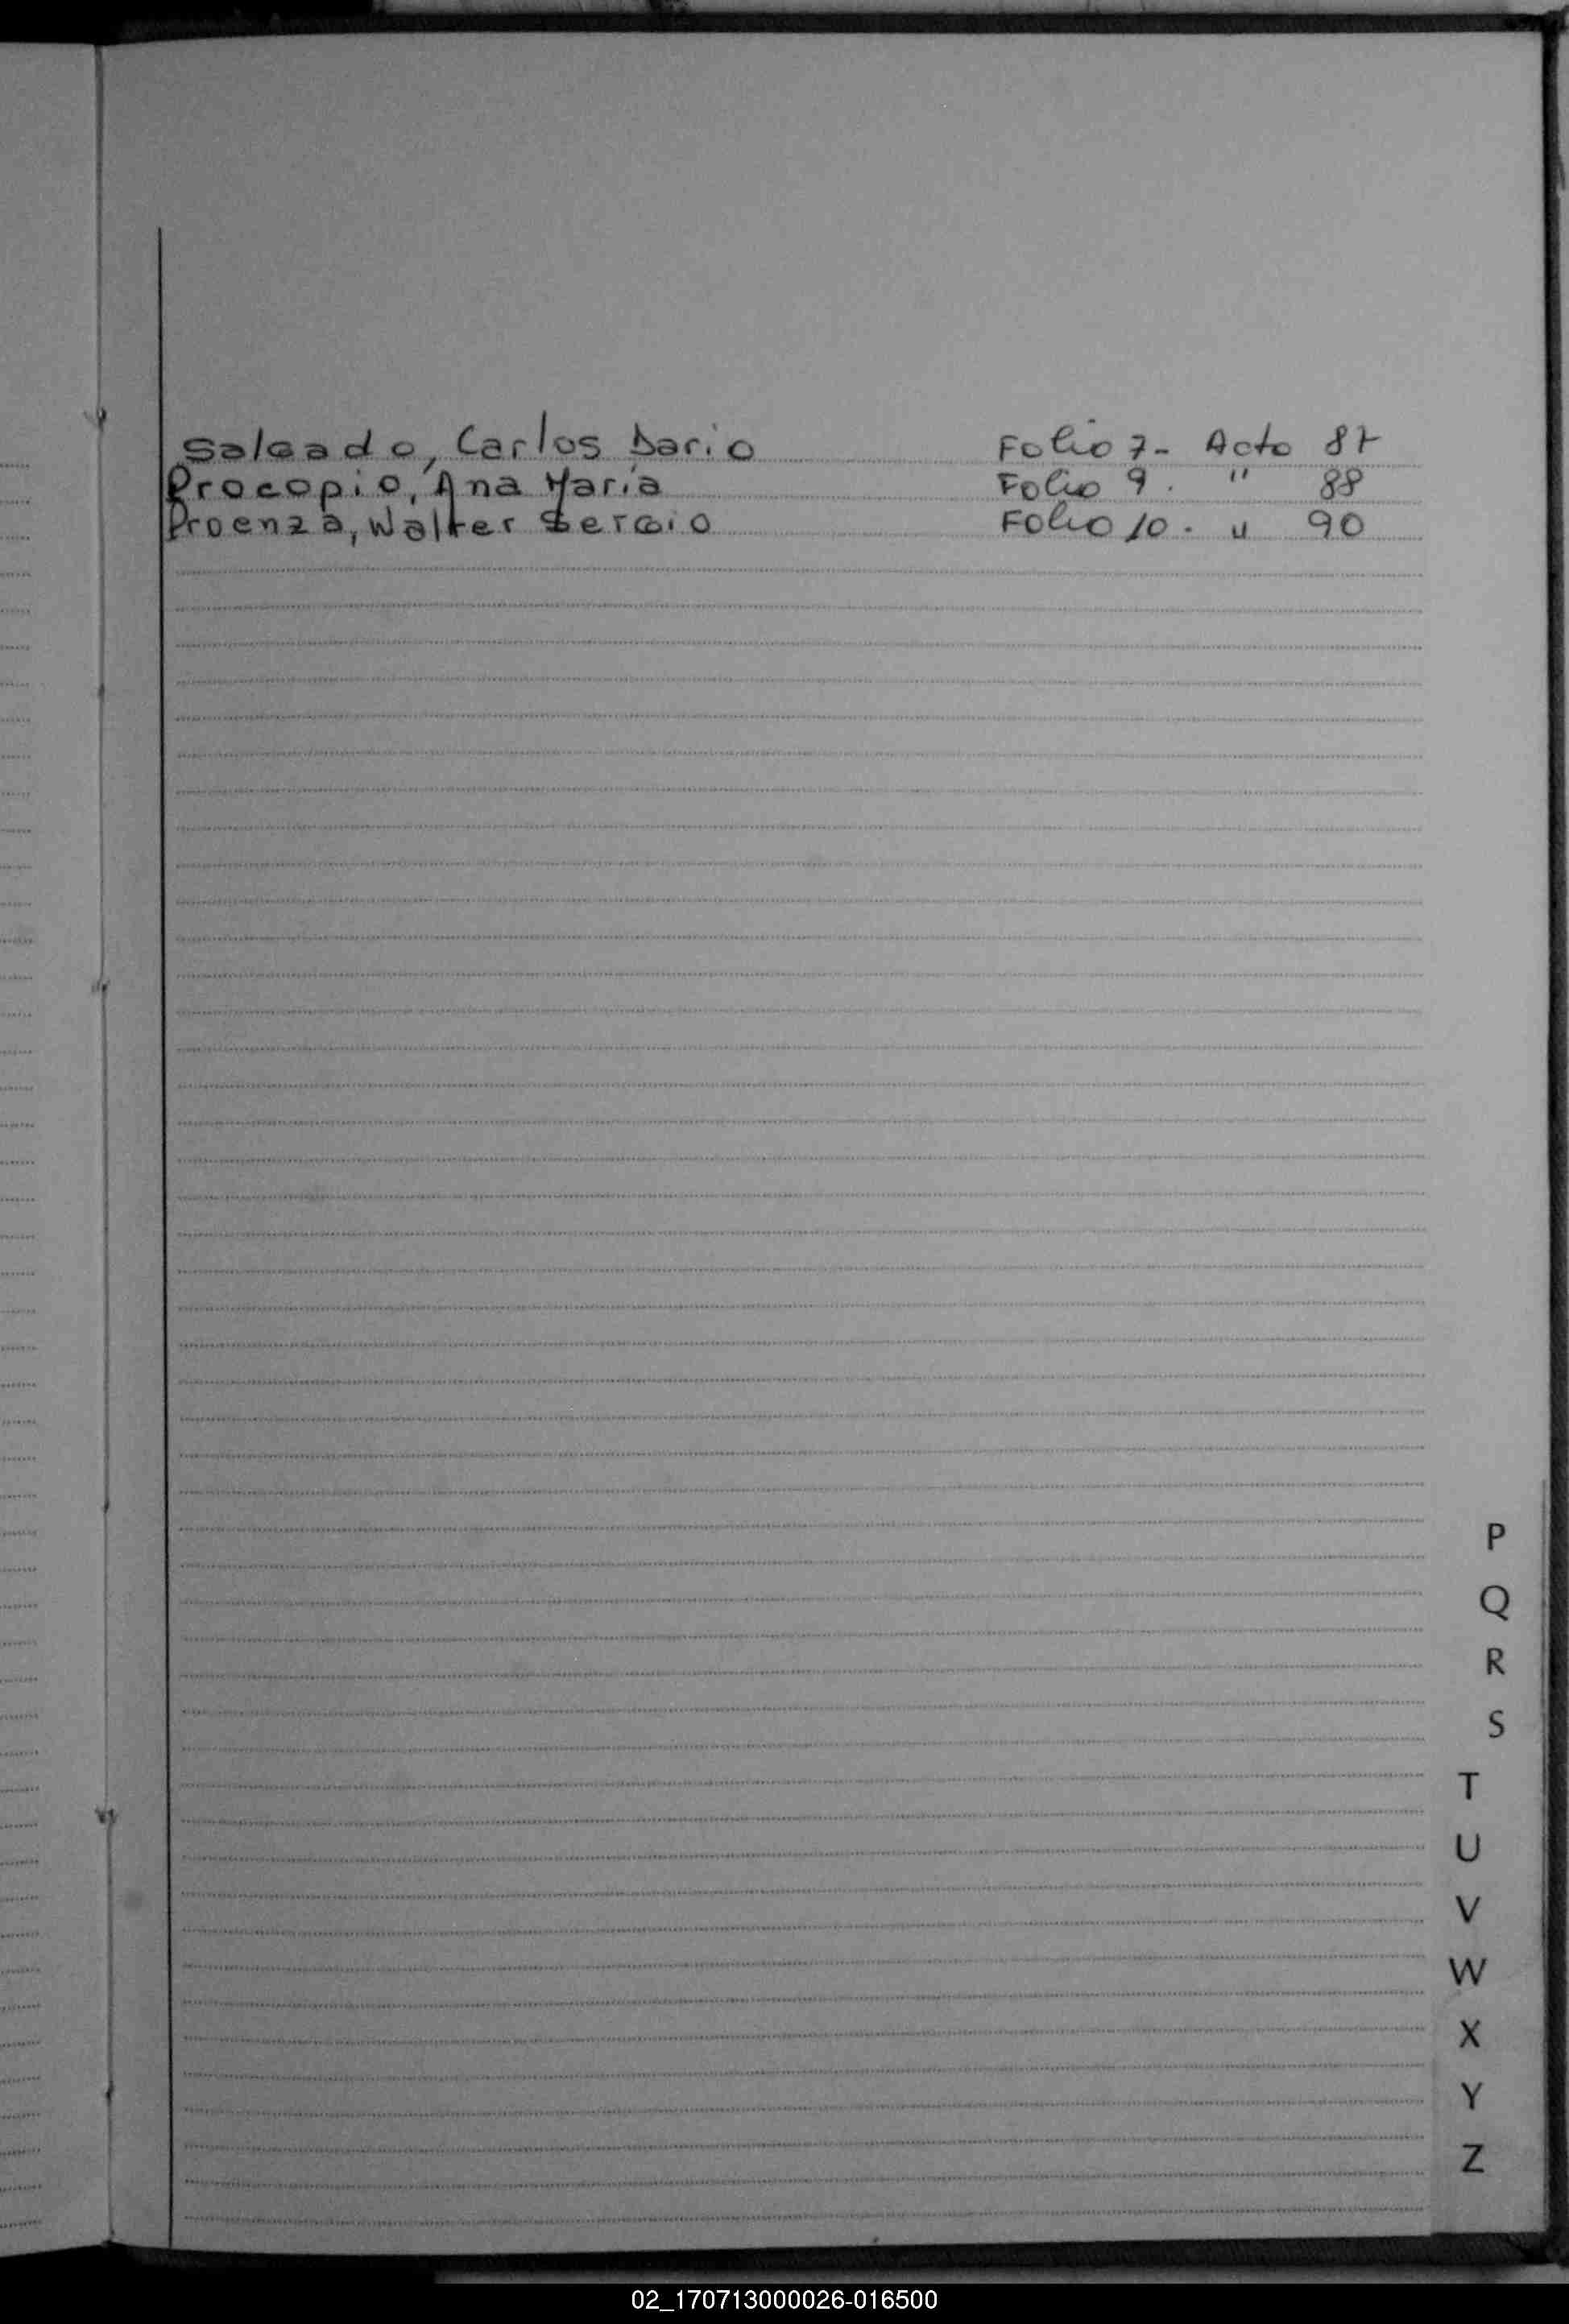 Salgado, Carlos Dario Folio 7- Acta 87
Procopio, Ana María Folio 9. " 88
Proenza, Walter Sergio Folio 10. " 90
P
Q
R
S
T
U
V
W
X
Y
Z
02_170713000026-016500